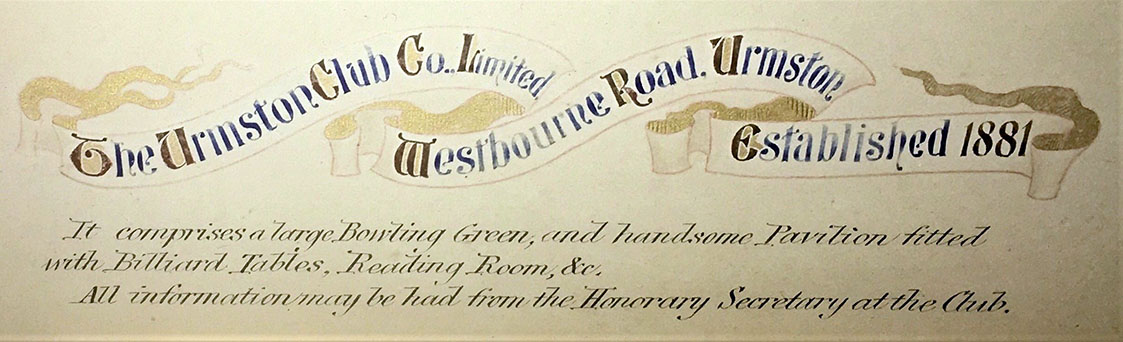 The Urmston Club Co., Limited,
Westbourne Road, Urmston,
Established 1881
It comprises a large Bowling Green, and handsome Pavilion fitted
with Billiard Tables, Reading Room, &c.
All information may be had from the Honorary Secretary at the Club.